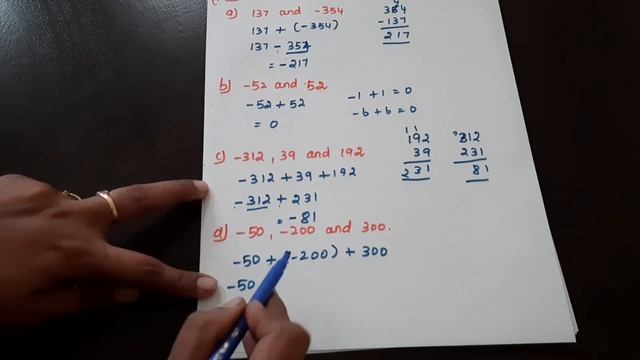 a) 137 and -354
137 + (-354)
137 - 354
= -217
354
-137
217
b) -52 and 52
-52 + 52
= 0
-1 + 1 = 0
-b + b = 0
c) -312, 39 and 192
-312 + 39 + 192
-312 + 231
= -81
1 1
192
39
231
312
231
81
d) -50, -200 and 300.
-50 + (-200) + 300
-50